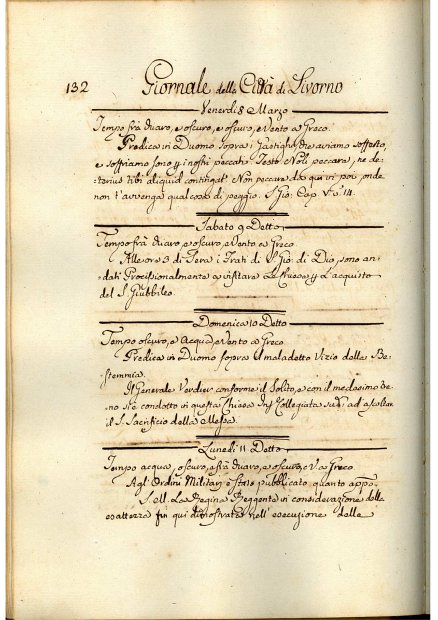 132 Giornale della Città di Livorno
Venerdi 8 Marzo
Tempo frà chiaro, e oscuro, e oscuro, e Vento a Greco.
Predica in Duomo sopra i Gastighi, che aviamo sofferto,
e soffriamo sono i nostri peccati. Testo Noli peccare, ne de-
:terius tibi aliquid contingat Non peccare da qui in poi, onde
non t'avvenga qualcosa di peggio. S. Gio: Cap. V. v. 14.
Sabato 9 Detto
Tempo frà chiaro, e oscuro, e Vento a Greco
Alle ore 3 di Sera i Frati di S. Gio: di Dio, sono an-
:dati Processionalmente a visitare Le Chiese L'acquisto
del S. Giubbileo.
Domenica 10 Detto
Tempo oscuro, e Acqua, e Vento a Greco
Predica in Duomo sopra il maladetto Vizio della Be-
stemmia.
Il Generale Verdier conforme il Solito, e con il medesimo
no si è condotto in questa Chiesa Collegiata ad ascoltar
il S. Sacrificio della Messa.
Lunedi 11 Detto
Tempo acqua, oscuro, e frà chiaro, e oscuro, e V. a Greco
Agl'Ordini Militari è stato pubblicato quanto appo.
S. M. La Regina Reggente in considerazione della
esattezza fin qui dimostrata nell'esecuzione delle